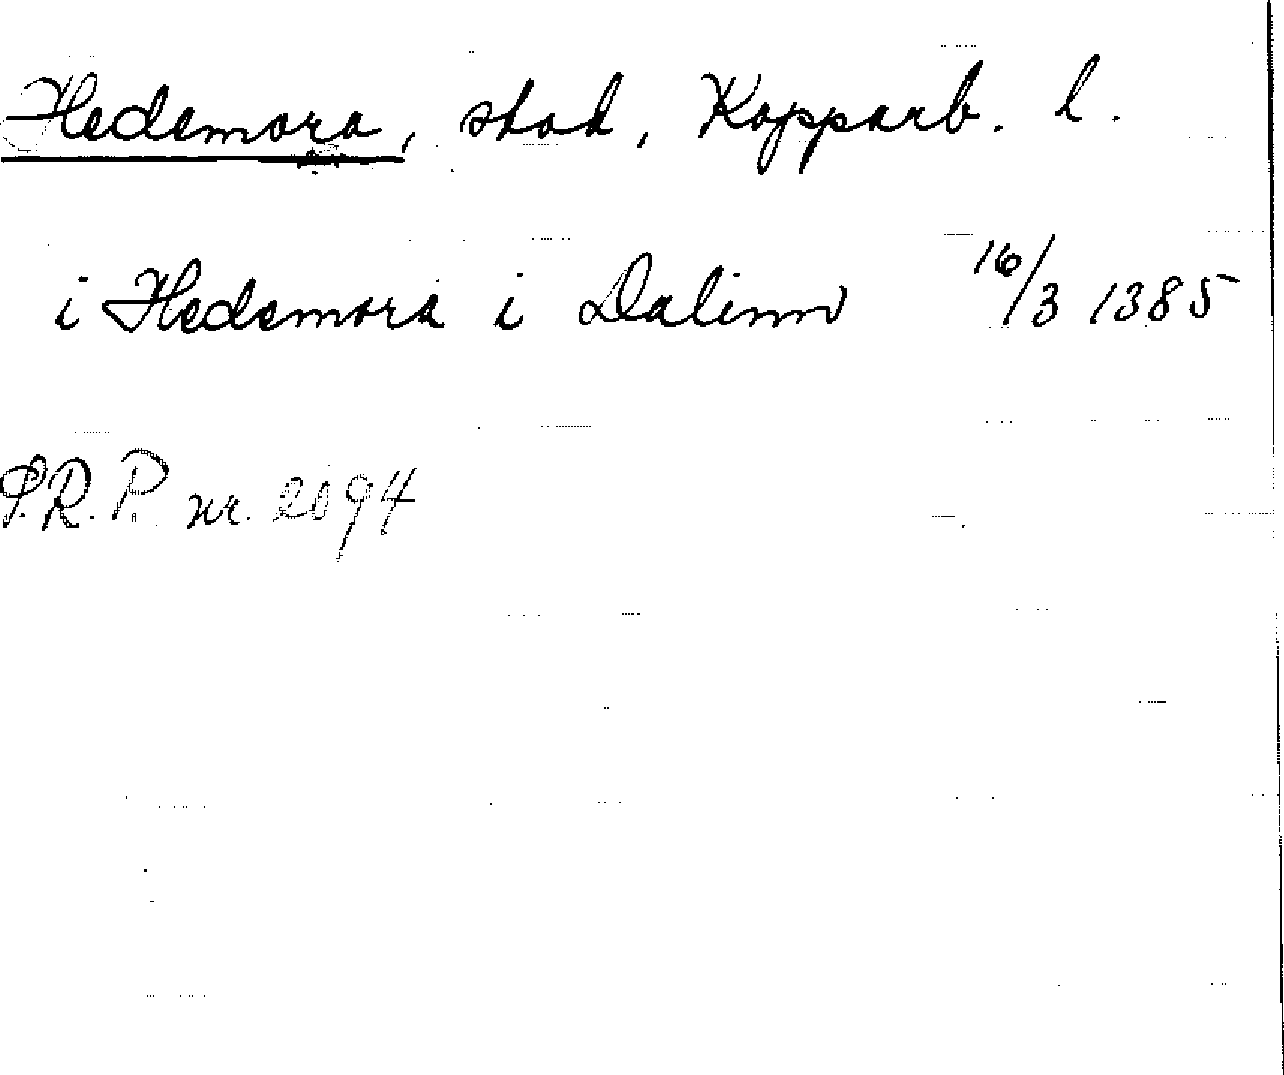 Hedemora, stad, Kopparb. l.
i Hedemora i Dalenno 16/3 1385
S.R.P. nr. 2094